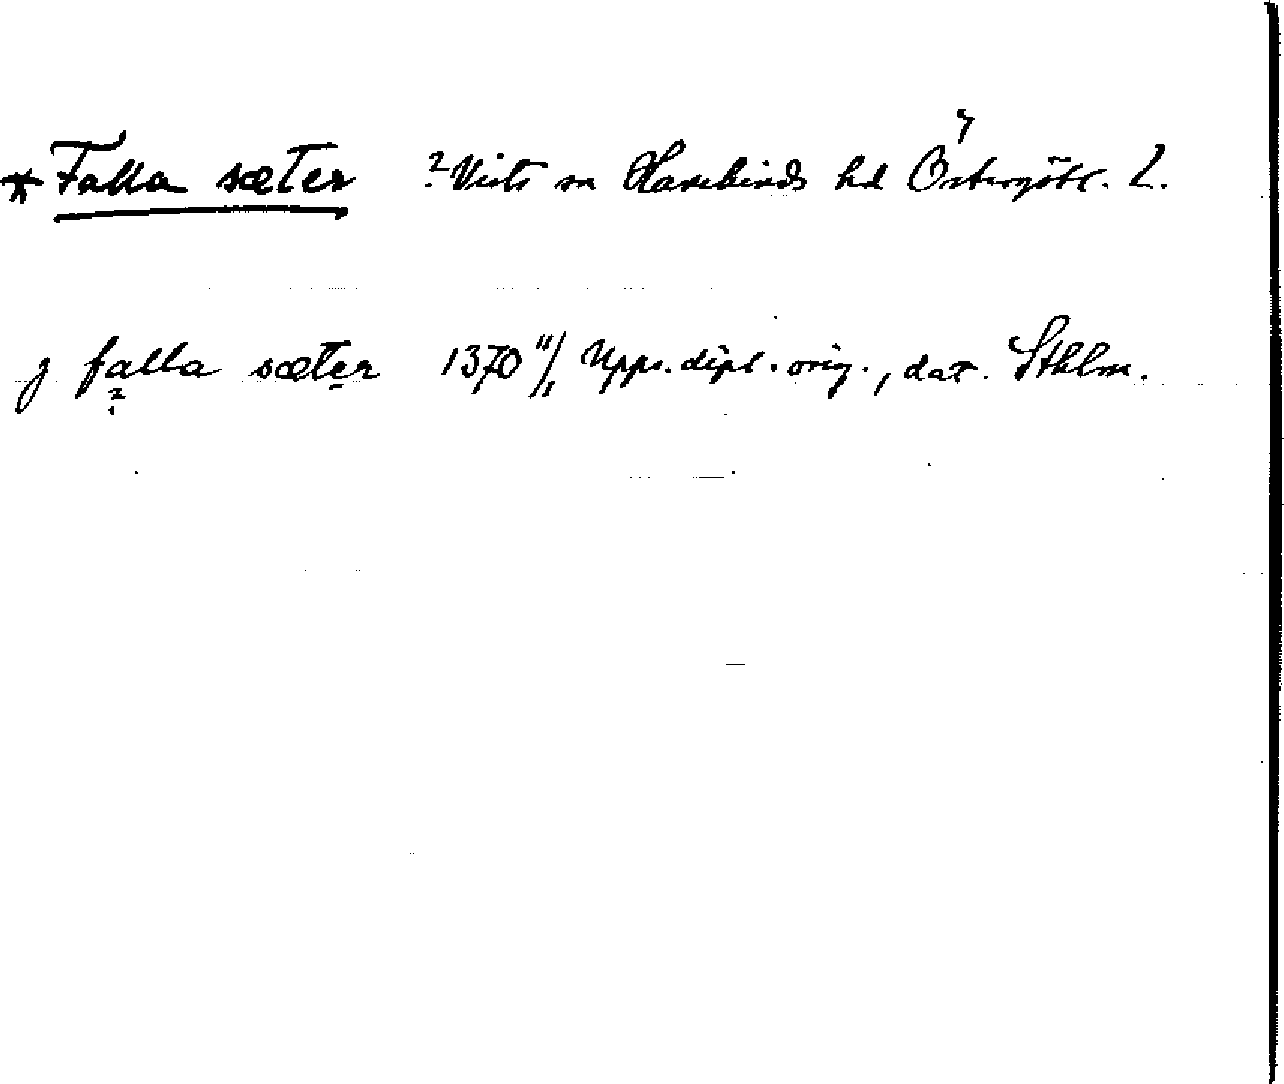 * Falla sæter ? Vists sn Hanebinds hd Östergötl. L.
j falla sæter 1370 11/1 Upps. dipl. orig., dat. Sthlm.
?